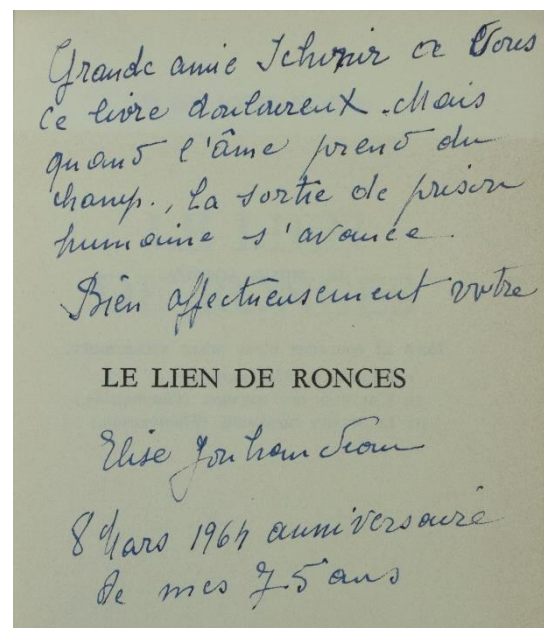 Grande amie à Vous
ce livre douloureux. Mais
quand l'âme prend du
champ., la sortie de prison
humaine s'avance
Bien affectueusement votre
LE LIEN DE RONCES
Elise Jouhandeau
8 Mars 1964 anniversaire
de mes 75 ans